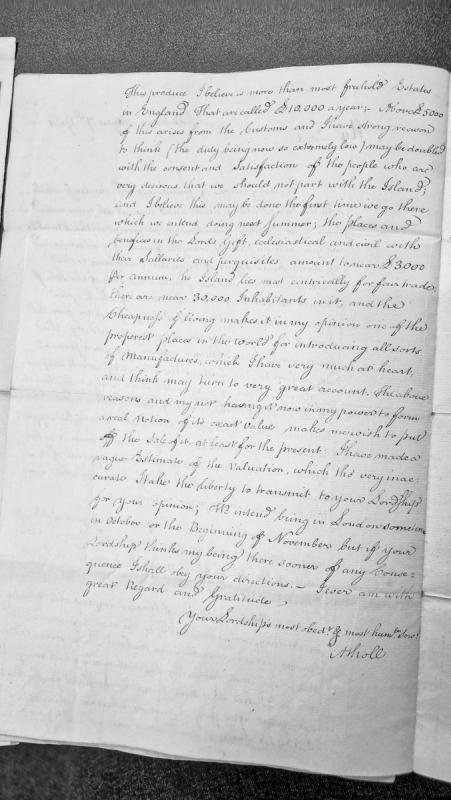 This produce I believe is more than most freehold Estates
in England That are called £10,000 a year;- Above £5000
of this arises from the Customs and I have strong reason
to think (the duty being now so extremely low) may be doubled
with the consent and Satisfaction of the people who are
very desirous that we should not part with the Island;
and I believe this may be done the first time we go there
which we intend doing next Summer; the places and
benefices in the Lords Gift, ecclesiastical and civil with
their Sallaries and perquisites amount to near £3000
per annum, the Island lies most centrically for fair trade;
there are near 30,000 Inhabitants in it, and the
Cheapness of living makes it in my opinion one of the
properest places in the world for introducing all sorts
of Manufactures, which I have very much at heart,
and think may turn to very great account. The above
reasons and my not having it now in my power to form
a real notion of its exact value makes me wish to put
off the Sale of it, at least for the present: I have made a
vague Estimate of the Valuation, which tho very inac=
curate I take the liberty to transmit to your Lordship
for your opinion; We intend being in London sometime
in October or the Beginning of November but if your
Lordship thinks my being there sooner of any Conse=
quence I shall obey your directions.- I ever am with
great Regard and Gratitude
Your Lordship's most obedt. & most humble Servt.
Atholl